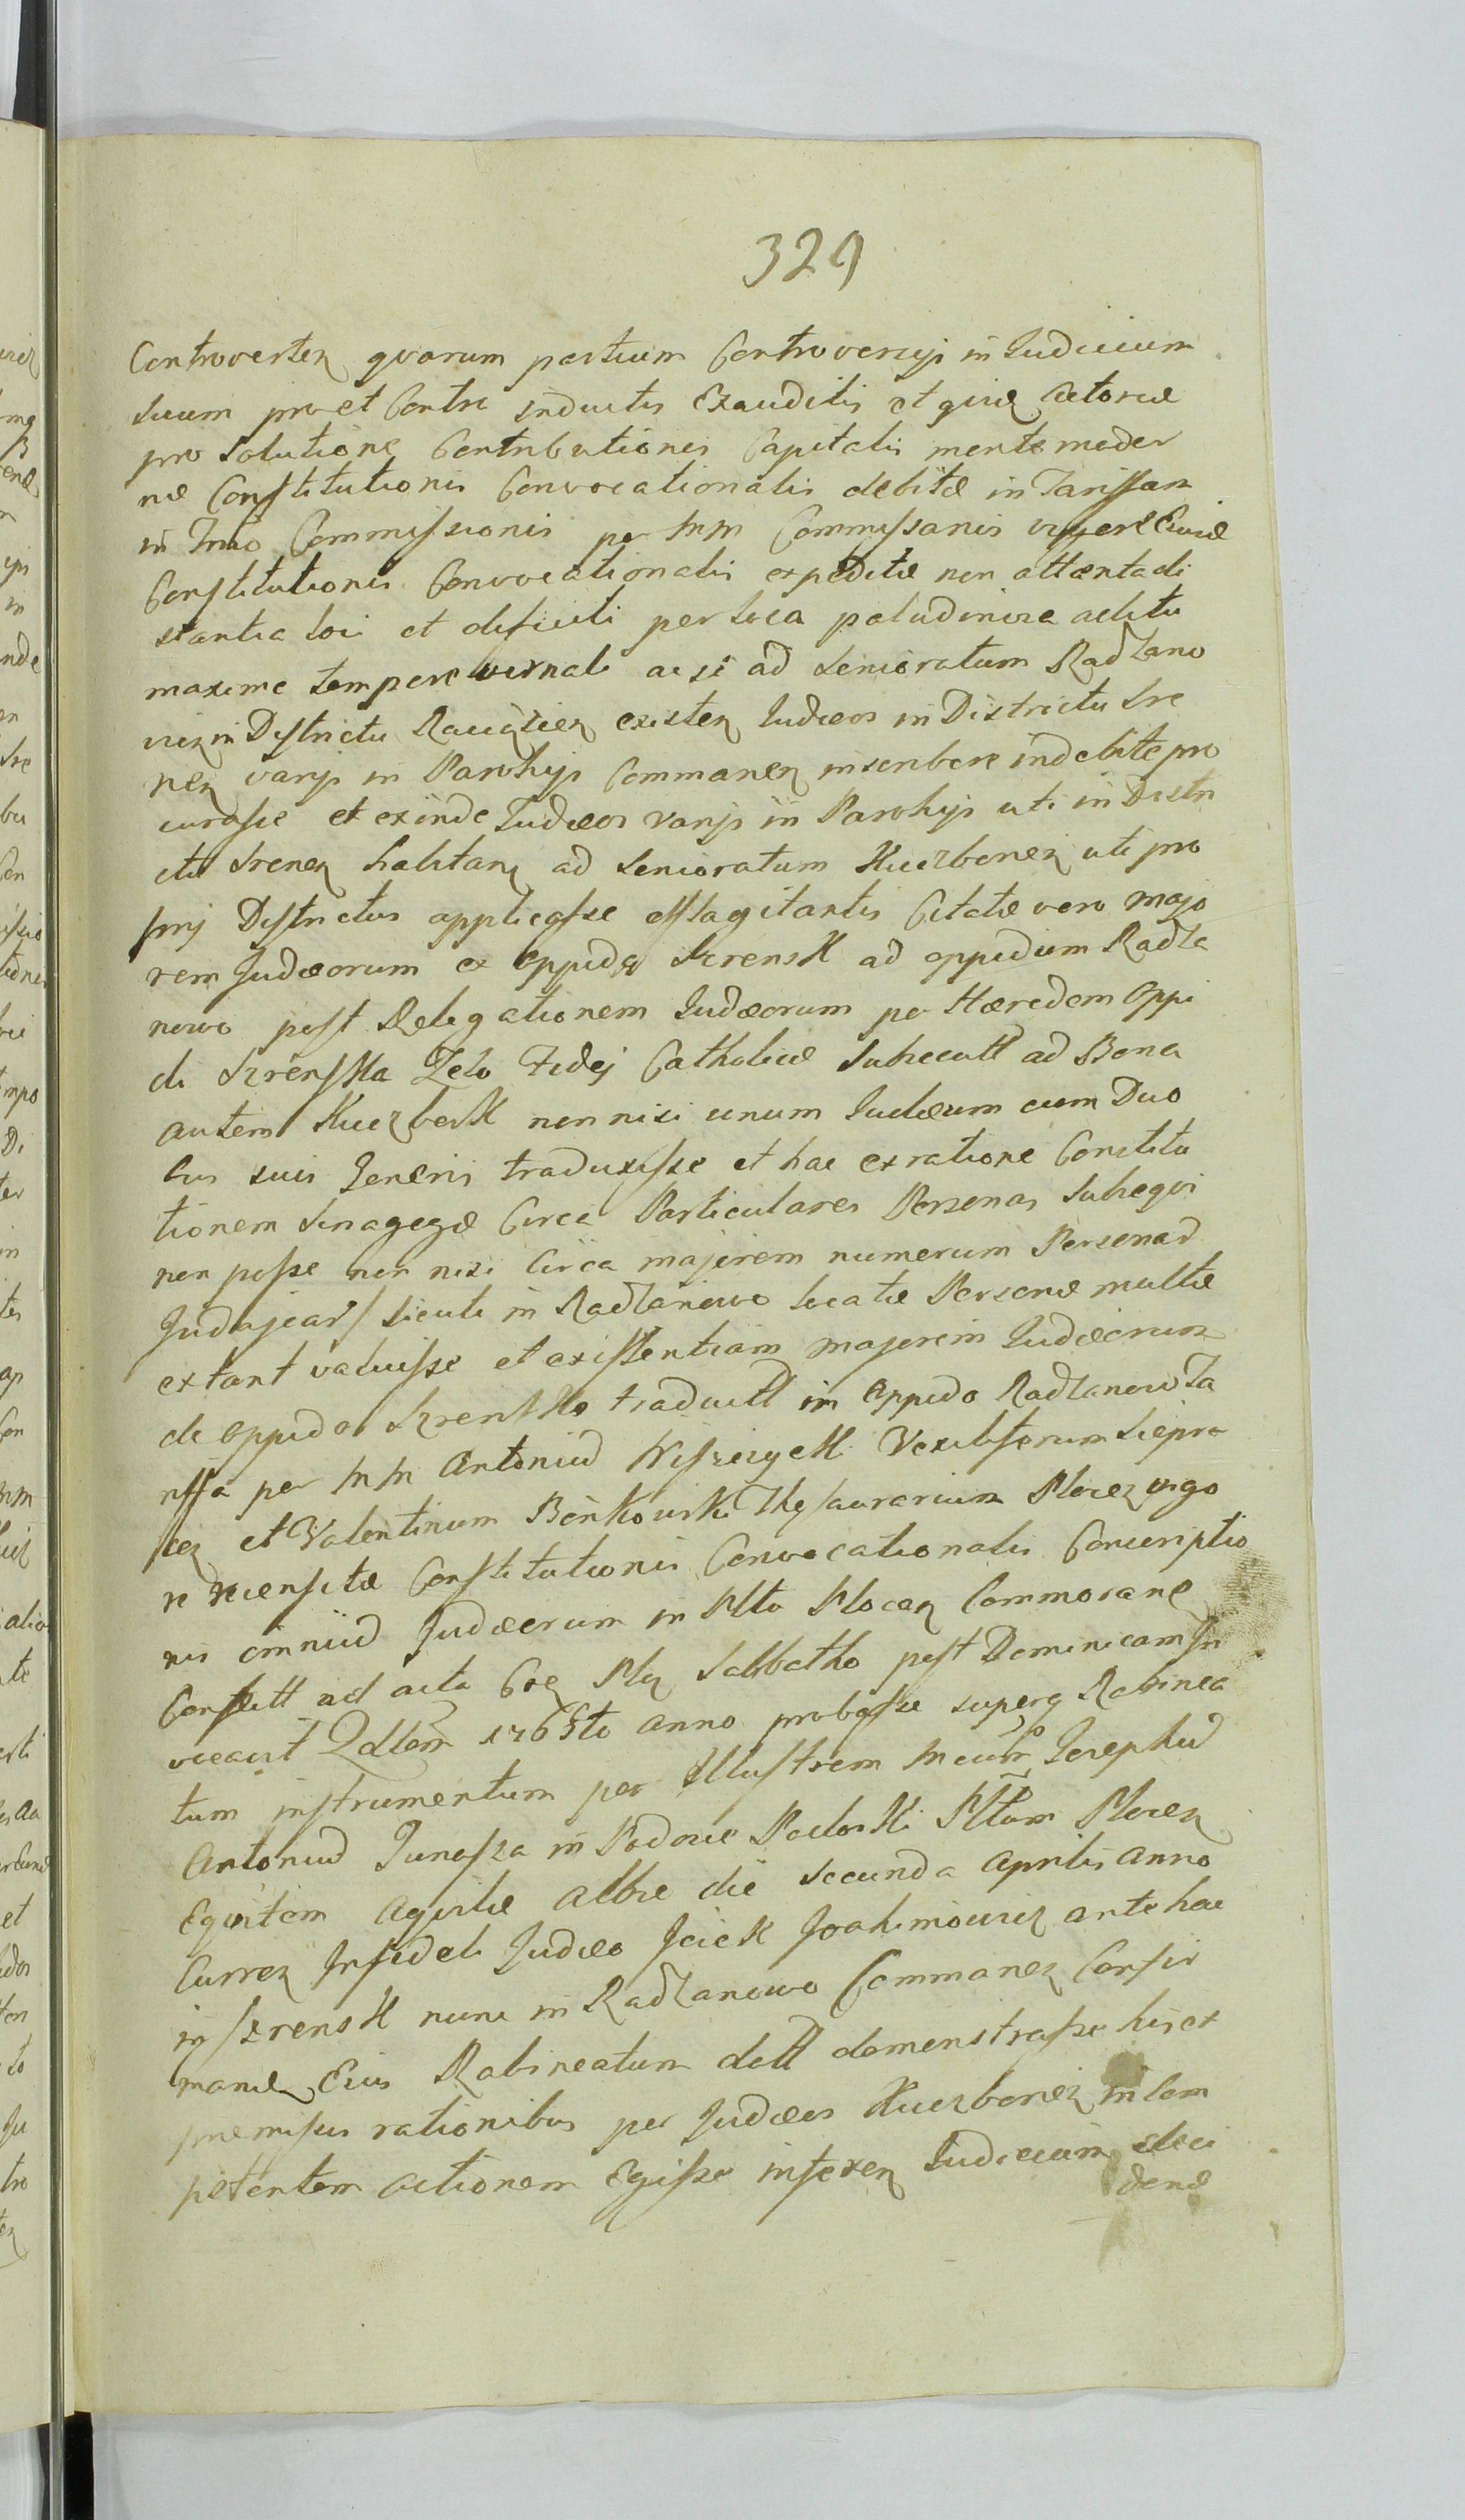 329
Controverten quarum partium Controversijs in Judicium
suum pro et Contra inductis Exauditis et quia Actorae
pro Solutione Contributionis Capitalis mente moder
nae Constitutionis Convocationalis debitae in Tariffam
in Commissionis per MM Commissarios vigore Ejusd
Constitutionis Convocationalis expeditae non attenta di
stantia loci et dificili per loca paludinosa aditu
maxime tempore vernali ac si ad Senioratum Radzano
vien in Districtu Raciązien existen Judaeos in Districtu Sre
nen varijs in Parohijs Commanen inscribere indebite pro
curasse et exinde Judaeos varijs in Parohijs uti in Distri
ctu Srenen habitan ad Senioratum Kuczbonen uti pro
prij Districtus applicasse efflagitantis Citatae vero majo
rem Judaeorum ex Oppido Szrensk ad oppidum Radza
nowo post Relegationem Judaeorum per Haeredem Oppi
di Szrenska Zelo Fidej Catholicae Subsecutt ad Bona
autem Kuczbork non nisi unum Judaeum cum Duo
bus suis Generis traduxisse et hac ex ratione Constitu
tionem Sinagogae Circa Particulares Personas Subsequi
non posse non nisi Circa majorem numerum Personar
Judajcar sicuti in Radzanowo locatae Personae multae
extant valuisse et existentiam majorem Judaeorum
de oppido Szrensko traductt in Oppido Radzanow Ta
riffa per MM Antonium Vexiliferum Sierp
cen et Valentinum Bonkowski Thesaurarium Plocen vigo
re recensitae Constitutionis Convocationalis Conscriptio
nis omnium Judaeorum in Plttu Plocen Commoran
Confectt ad acta Sabbatho post Dominicam In
vocavit Qdlem 1765to anno probasse superq Rabinea
tum instrumentum per Illustrem Mcum Josephum
Antonium Junosza in Podoski Plttum Plocen
Equitem Aquilae Albae die Secunda Aprilis Anno
Curren Infideli Judaeo Icick antehac
in Szrensk nunc in Radzanowo Commanen Confir
man Ejus Rabineatum datt demonstrasse his ex
praemissis rationibus per Judaeos Kuczbonen incom
petentem actionem Egisse inferen Judicium deci
dend